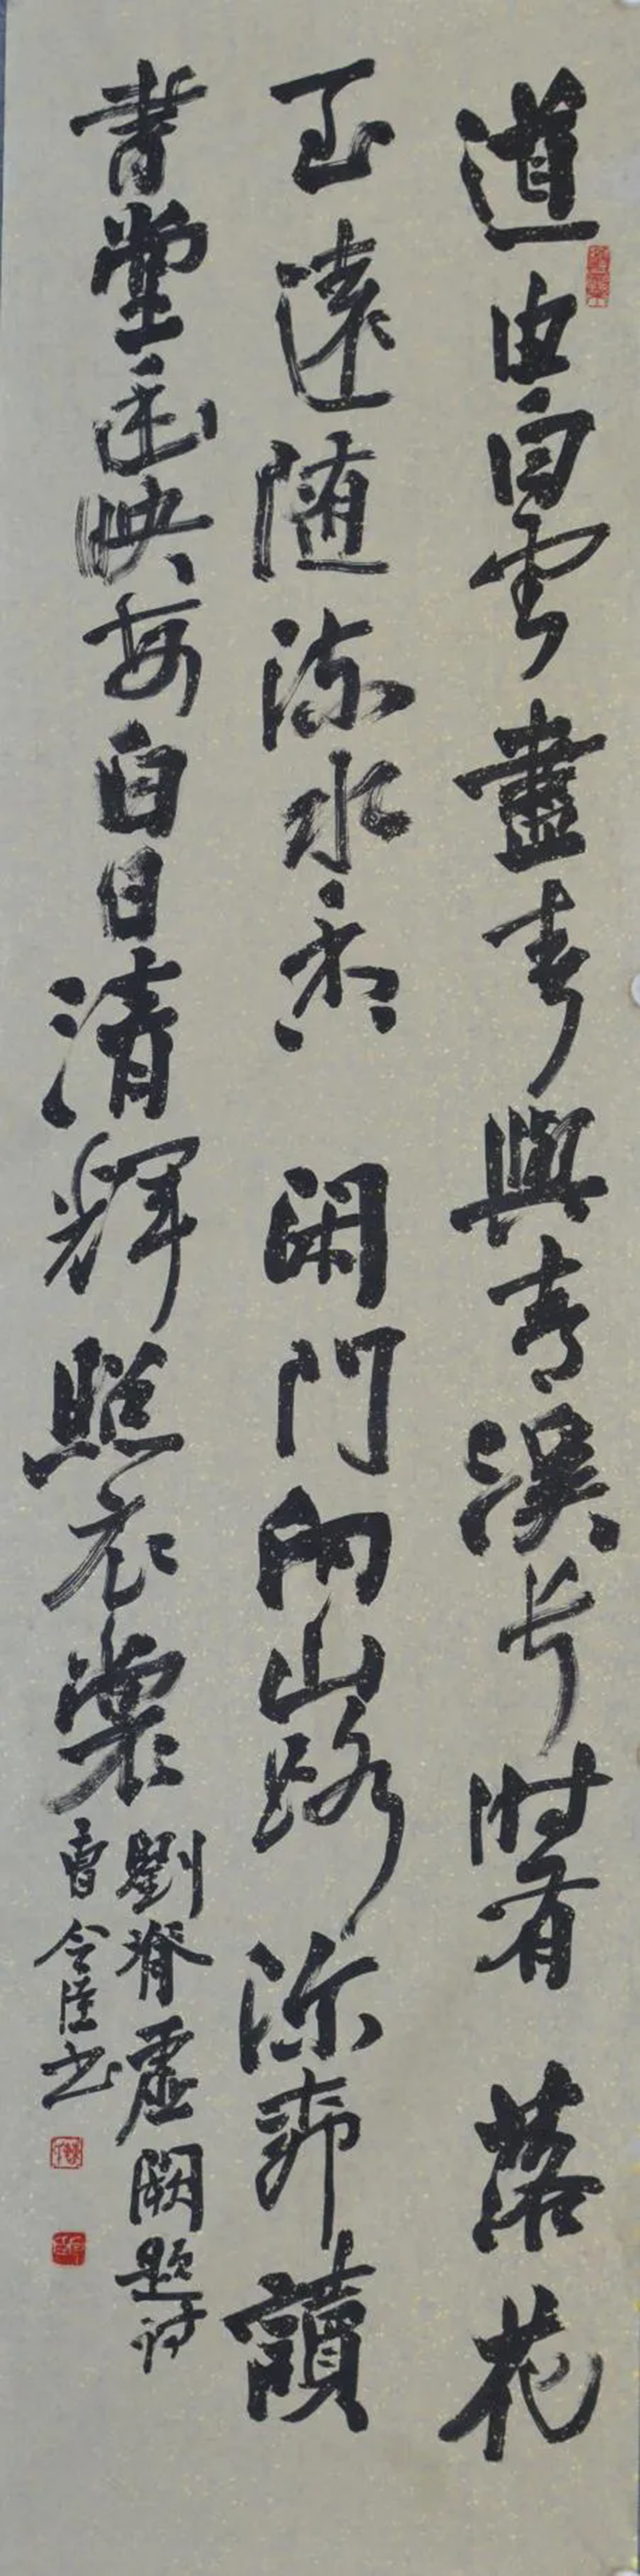 道由白雲盡春與青溪長時有落花
至遠随流水香閑門向山路深柳讀
書堂幽映每白日清輝照衣裳
劉脊虛闕題詩
曹令书